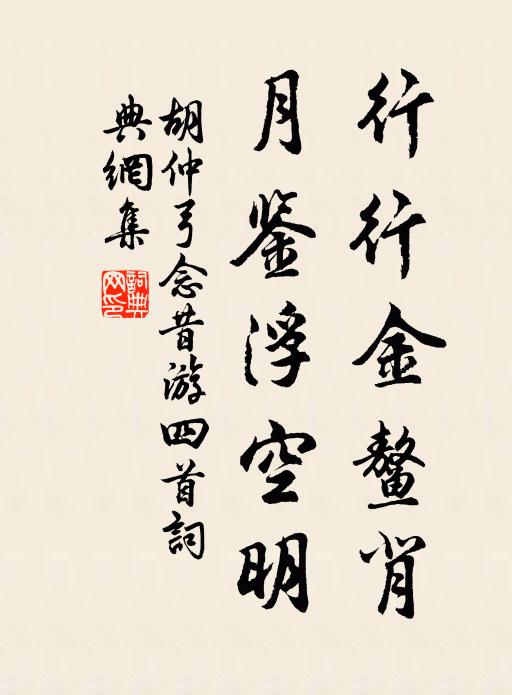 行行金鳌肖
月鉴浮空明
胡仲弓念昔游四首詞
典網集
詞典網印